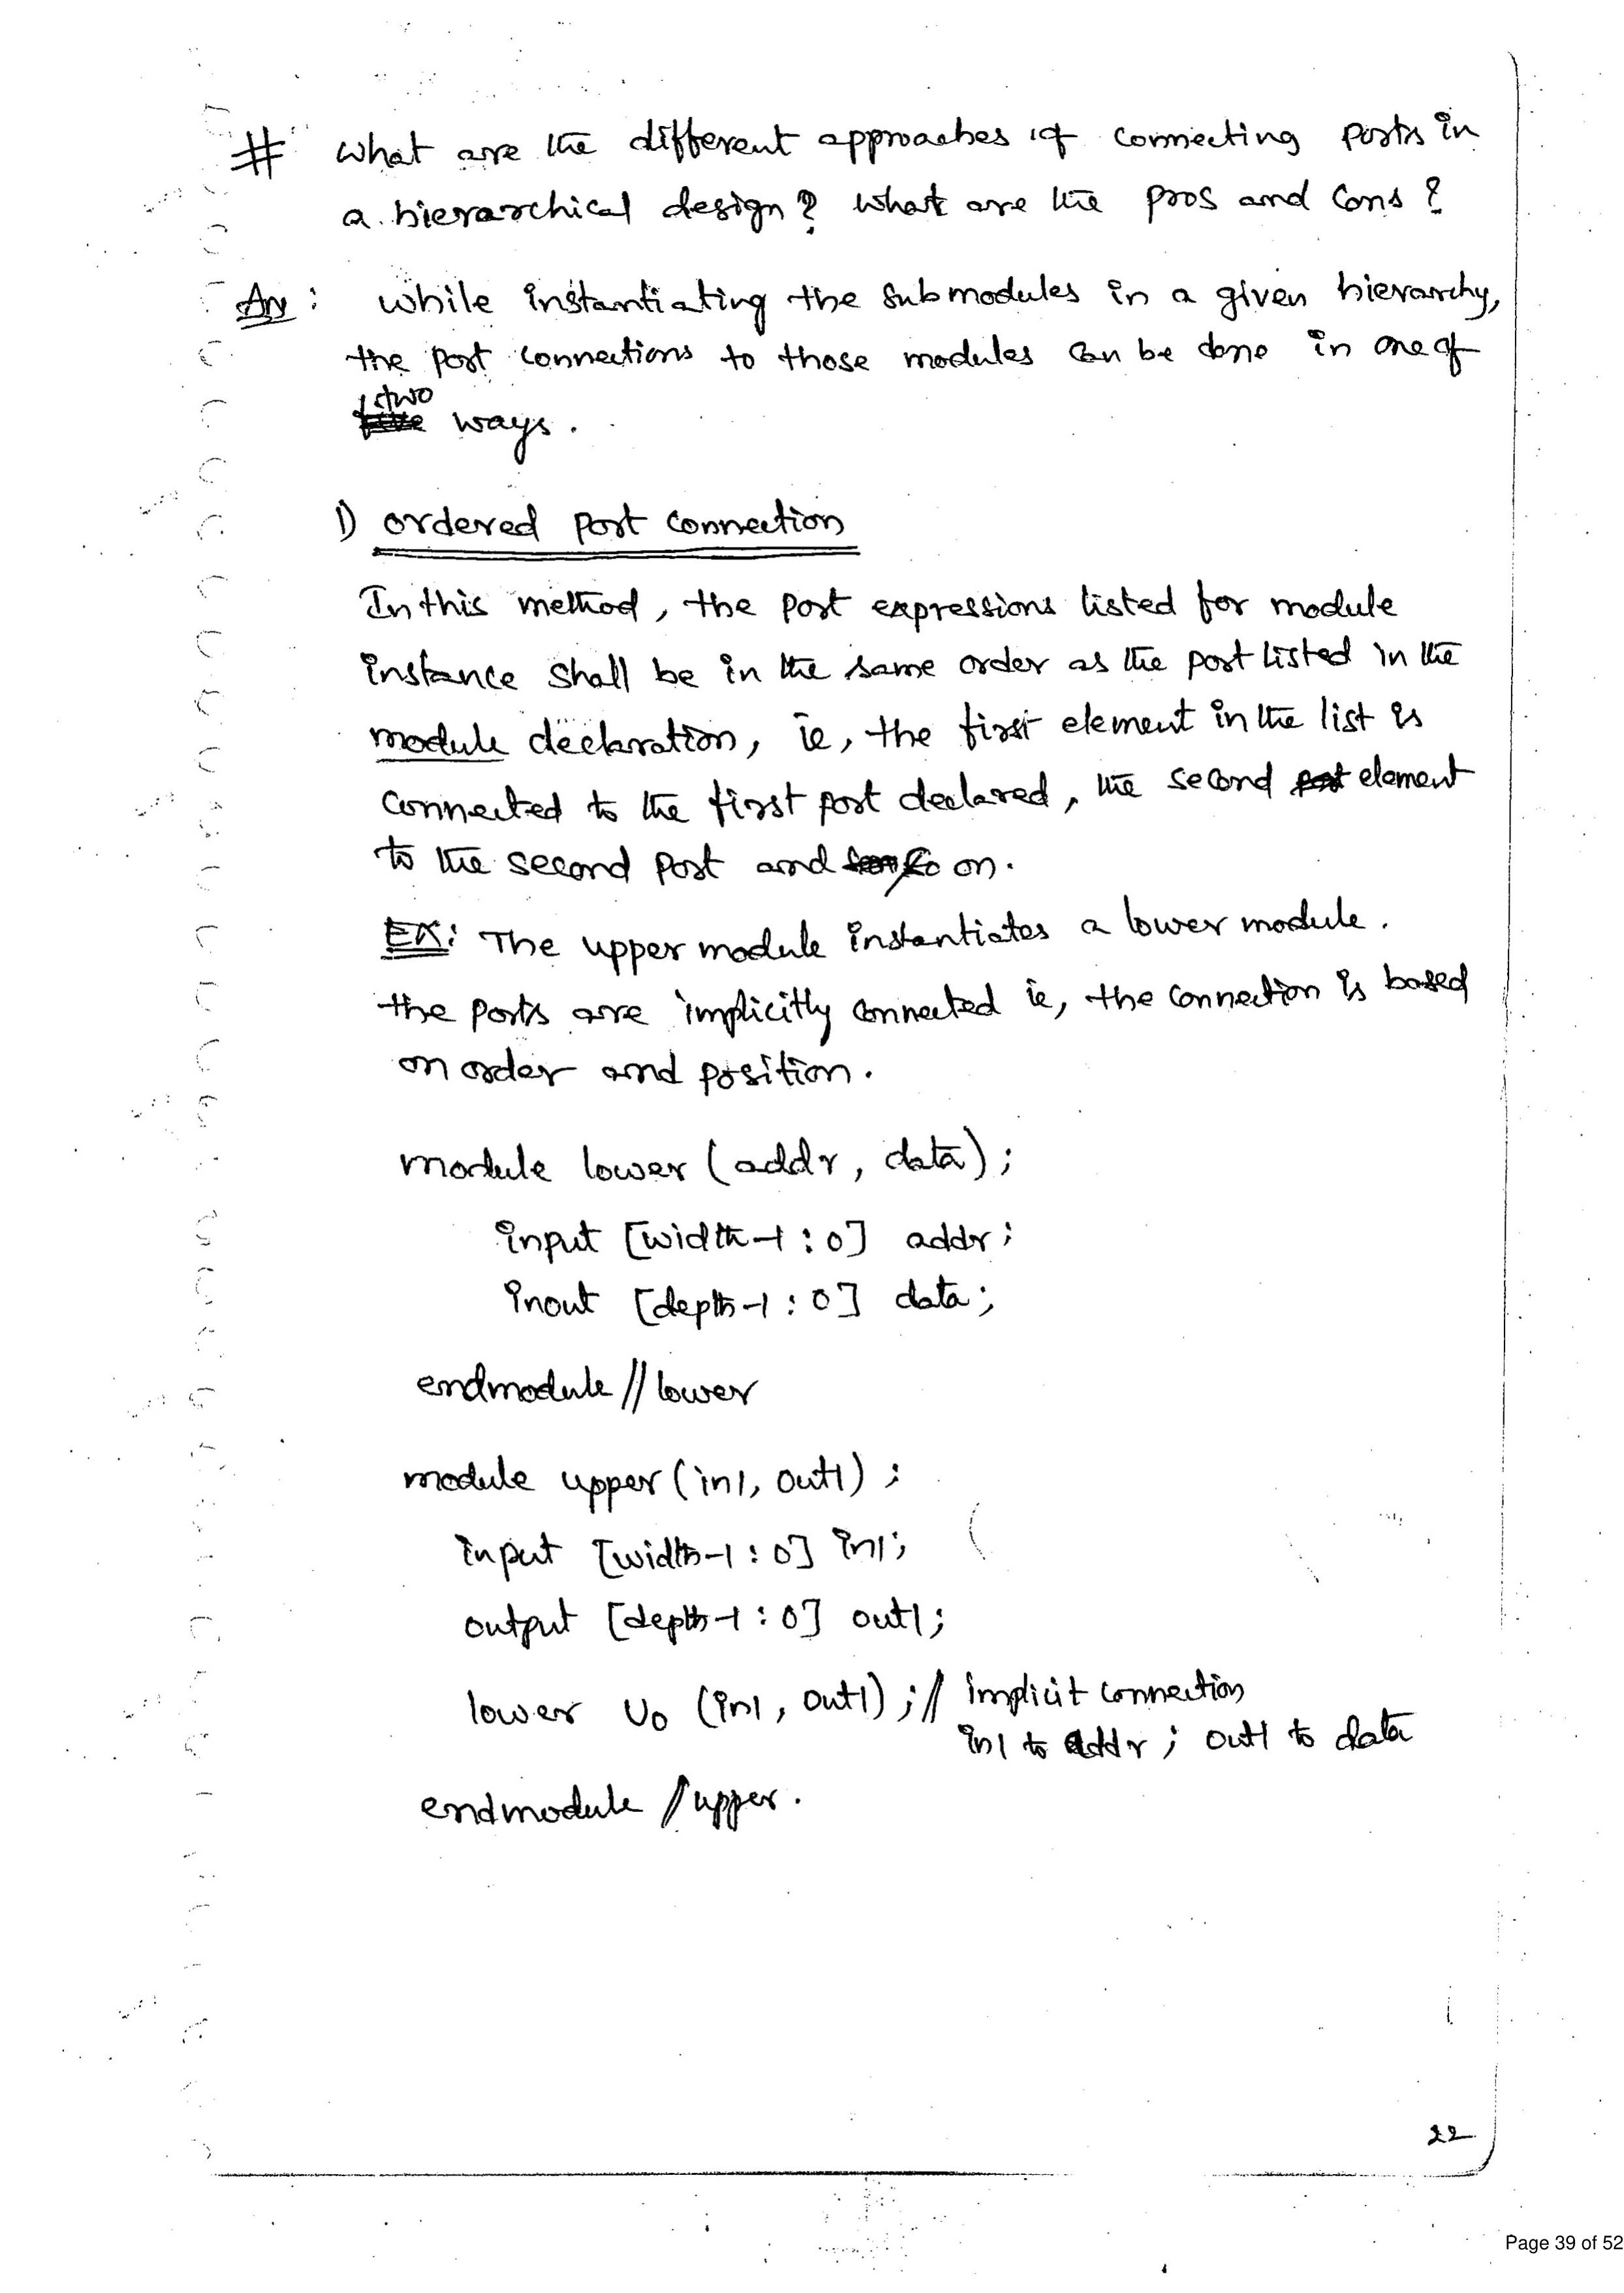 # What are the different approaches of connecting ports in
a hierarchical design? What are the pros and cons?
Ans: while instantiating the submodules in a given hierarchy,
the port connections to those modules can be done in one of
two
ways.
1) ordered port connection
In this method, the port expressions listed for module
instance shall be in the same order as the port listed in the
module declaration, ie, the first element in the list is
connected to the first port declared, the second element
to the second port and so on.
EX: The upper module instantiates a lower module.
the ports are implicitly connected ie, the connection is based
on order and position.
module lower (addr, data);
input [width-1:0] addr;
inout [depth-1:0] data;
endmodule // lower
module upper (in1, out1);
input [width-1:0] in1;
output [depth-1:0] out1;
lower U0 (in1, out1); // implicit connection
in1 to addr; out1 to data
endmodule // upper.
22
Page 39 of 52